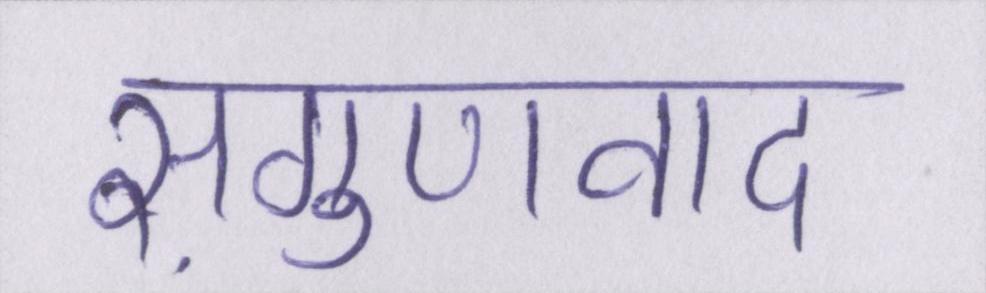 स़गुणवाद